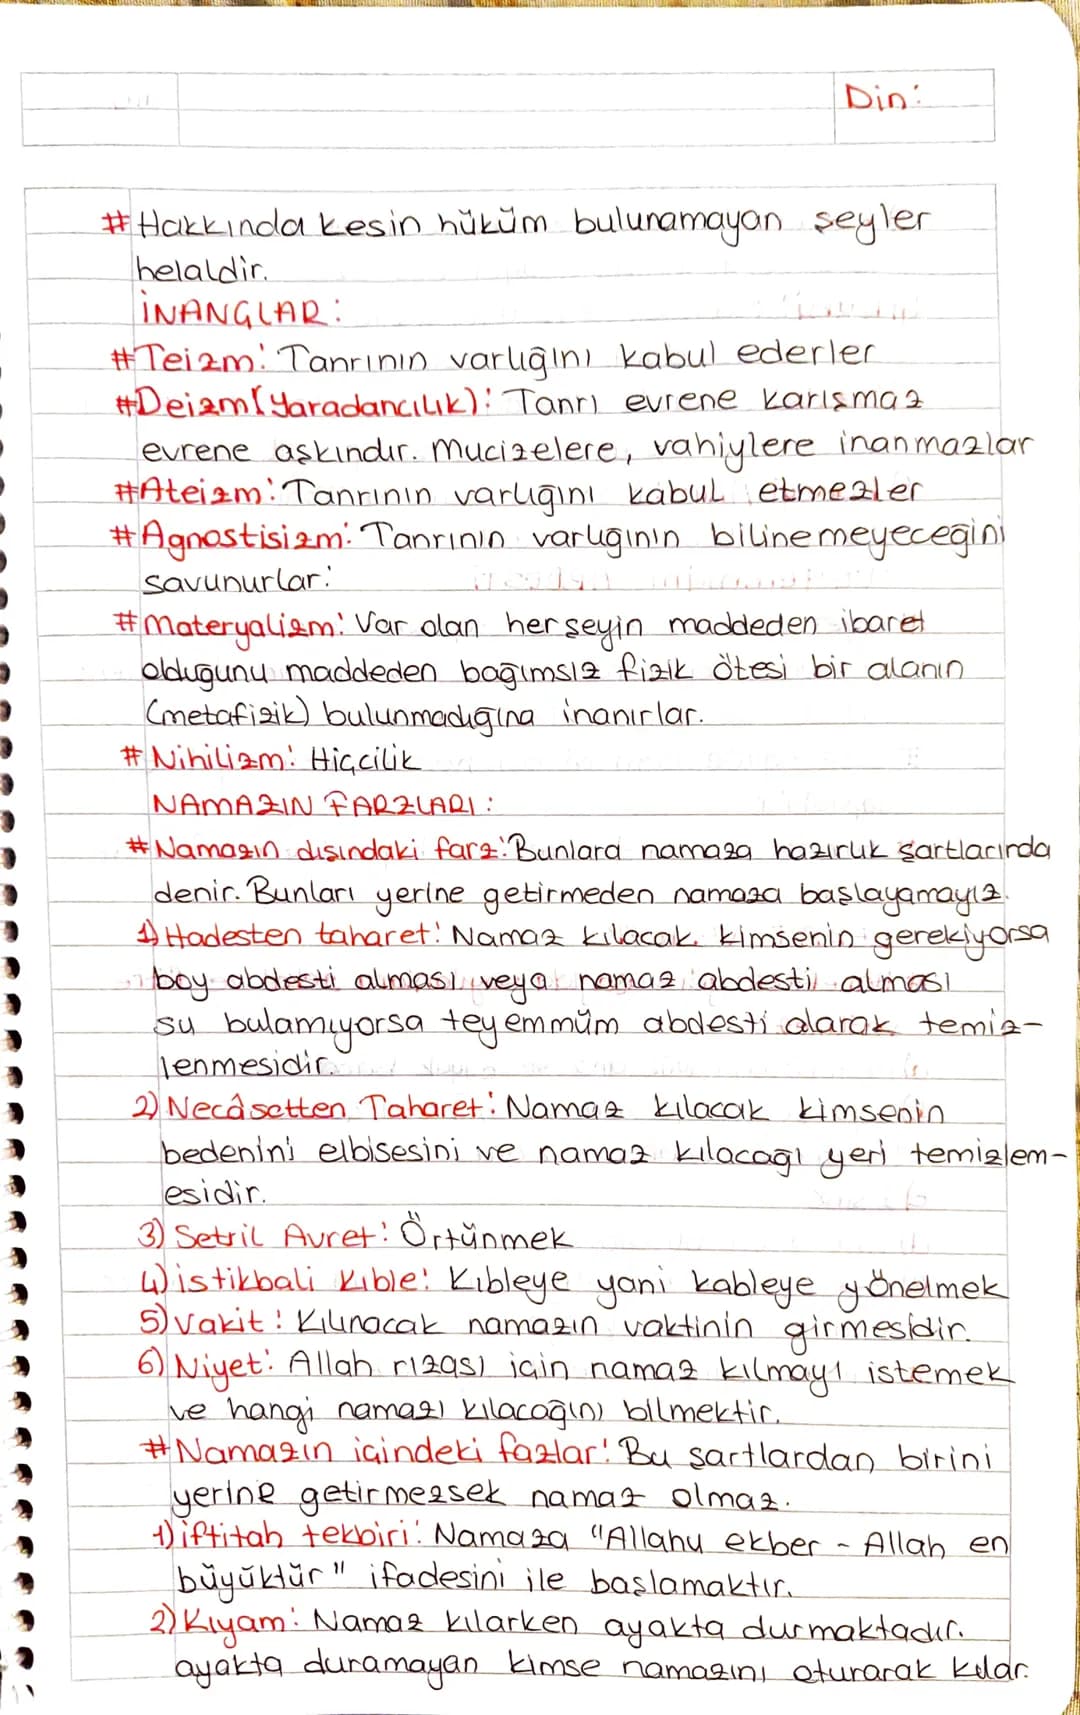 Din:
# Hakkında kesin hüküm bulunamayan şeyler
helaldir.
İNANÇLAR:
#Teizm: Tanrının varlığını kabul ederler
#Deizm(Yaradancılık): Tanrı evrene karışmaz
evrene aşkındır. Mucizelere, vahiylere inanmazlar
#Ateizm: Tanrının varlığını kabul etmezler
#Agnostisizm: Tanrının varlığının bilinemeyeceğini
savunurlar:
#Materyalizm: Var olan herşeyin maddeden ibaret
olduğunu maddeden bağımsız fizik ötesi bir alanın
(metafizik) bulunmadığına inanırlar.
# Nihilizm: Hiççilik
NAMAZIN FARZLARI:
# Namazın dışındaki farz: Bunlara namaza hazırlık şartlarında
denir. Bunları yerine getirmeden namaza başlayamayız.
1) Hadesten taharet: Namaz kılacak kimsenin gerekiyorsa
boy abdesti alması veya namaz abdesti alması
su bulamıyorsa teyemmüm abdesti alarak temiz-
lenmesidir.
2) Necâsetten Taharet: Namaz kılacak kimsenin
bedenini elbisesini ve namaz kılacağı yeri temizlem-
esidir.
3) Setril Avret: Örtünmek
4) istikbali kıble: Kıbleye yani kableye yönelmek
5) Vakit: Kılınacak namazın vaktinin girmesidir.
6) Niyet: Allah rızası için namaz kılmayı istemek
ve hangi namazı kılacağını bilmektir.
# Namazın içindeki fazlar: Bu şartlardan birini
yerine getirmezsek namaz olmaz.
1) iftitah tekbiri: Namaza "Allahu ekber - Allah en
büyüktür" ifadesini ile başlamaktır.
2) Kıyam: Namaz kılarken ayakta durmaktadır.
ayakta duramayan kimse namazını oturarak kılar.